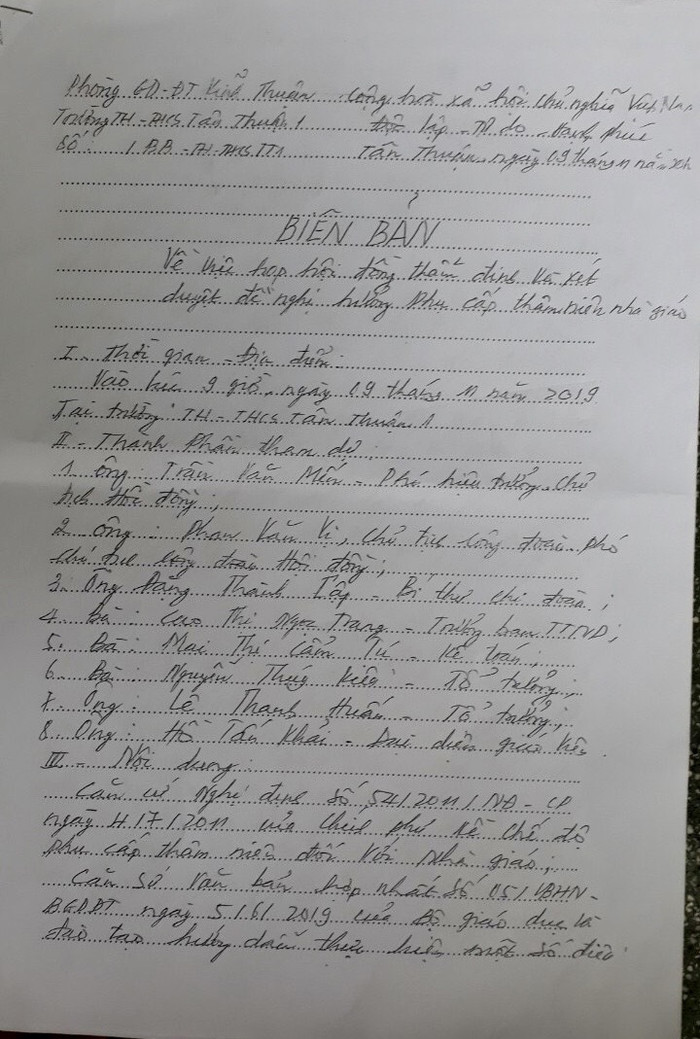 Phòng GD-ĐT Vĩnh Thuận Cộng hoà xã hội chủ nghĩa Việt Nam
Trường TH-THCS Tân Thuận 1 Độc lập - Tự do - Hạnh phúc
Số: /BB-TH-THCSTT1 Tân Thuận, ngày 09 tháng 11 năm
BIÊN BẢN
Về việc họp hội đồng thẩm định và xét
duyệt đề nghị hưởng phụ cấp thâm niên nhà giáo
I - Thời gian - Địa điểm:
Vào lúc 9 giờ, ngày 09 tháng 11 năm 2019
Tại trường TH-THCS Tân Thuận 1
II - Thành phần tham dự:
1. Ông: Trần Văn Mến - Phó hiệu trưởng - Chủ
tịch Hội đồng;
2. Ông: Phan Văn Vị, Chủ tịch công đoàn - Phó
chủ tịch công đoàn Hội đồng;
3. Ông Đặng Thành Lập - Bí thư chi đoàn;
4. Bà: Cao Thị Ngọc Trang - Trưởng ban TTND;
5. Bà: Mai Thị Cẩm Tú - Kế toán;
6. Bà: Nguyễn Thuý Kiều - Tổ trưởng;
7. Ông: Lê Thanh Huấn - Tổ trưởng;
8. Ông: Hồ Tấn Khải - Đại diện giáo viên
III - Nội dung:
Căn cứ Nghị định số 54/2011/NĐ-CP
ngày 4/7/2011 của Chính phủ về chế độ
phụ cấp thâm niên đối với nhà giáo;
Căn cứ Văn bản hợp nhất số 05/VBHN-
BGDĐT ngày 5/6/2019 của Bộ giáo dục và
đào tạo hướng dẫn thực hiện một số điều